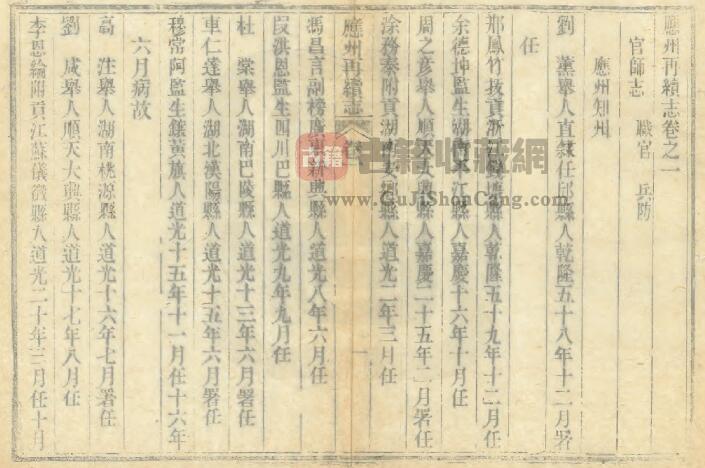 應州再續志卷之一
官師志 職官 兵防
應州知州
劉 薰舉人直隸任邱縣人乾隆五十八年十二月署
任
鄒鳳竹拔貢浙 縣人乾隆五十九年十二月任
余德坤監生湖南 江縣人嘉慶十六年十月任
周之彥舉人順天大興縣人嘉慶二十五年二月署任
涂務泰附貢湖南 鄉縣人道光二年三月任
應州再續志 卷 一
馮昌言副榜廣東新興縣人道光八年六月任
段洪恩監生四川巴縣人道光九年九月任
杜 棠舉人湖南巴陵縣人道光十三年六月署任
車仁蓬舉人湖北漢陽縣人道光十五年六月署任
穆常阿監生鑲黃旗人道光十五年十一月任十六年
六月病故
高 注舉人湖南桃源縣人道光十六年七月署任
劉 咸舉人順天大興縣人道光十七年八月任
李恩綸附貢江蘇儀徵縣人道光二十年三月任十月
古籍
古籍收藏網
www.GuJiShouCang.com